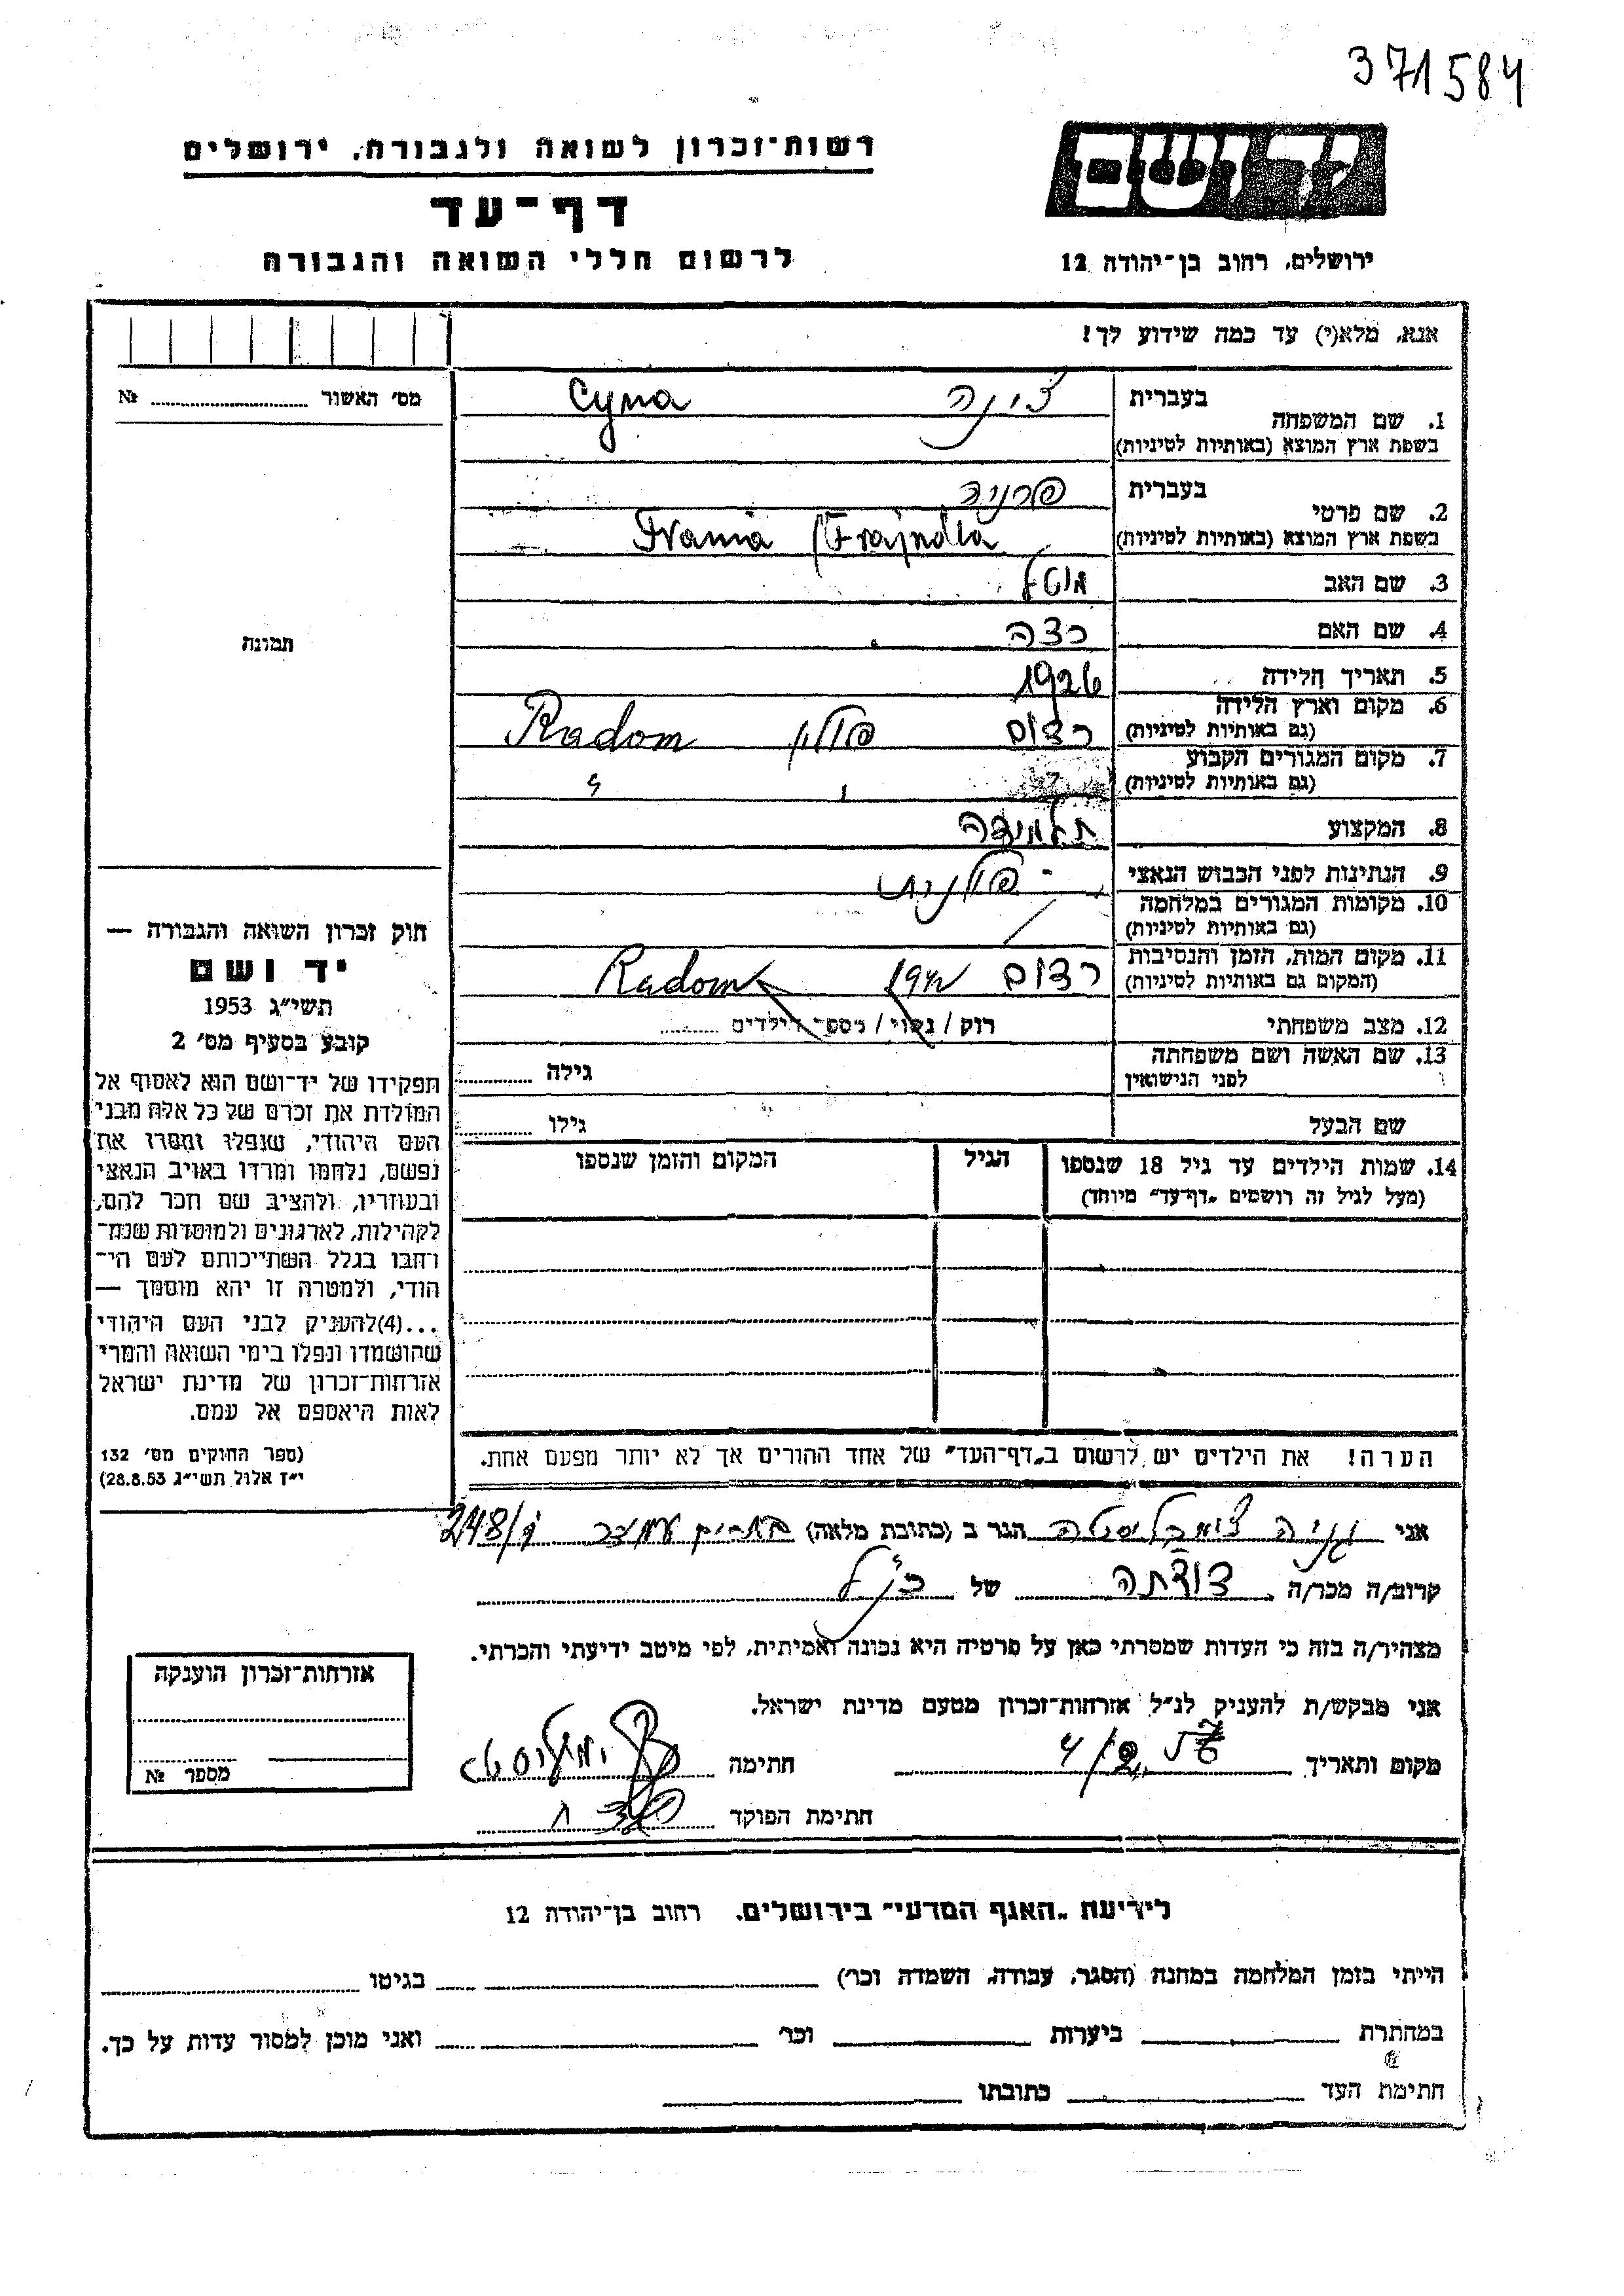 371584
יד ושם
רשות־זכרון לשואה ולגבורה, ירושלים
דף־עד
לרשום חללי השואה והגבורה
ירושלים, רחוב בן־יהודה 12
אנא, מלא(י) עד כמה שידוע לך!
מס' האשור ........ №
תמונה
1. שם המשפחה בעברית צינה Cyna
בשפת ארץ המוצא (באותיות לטיניות)
2. שם פרטי בעברית פרניה
בשפת ארץ המוצא (באותיות לטיניות) Frania (Frajndla
3. שם האב מוטל
4. שם האם רצה
5. תאריך הלידה 1926
6. מקום וארץ הלידה
(גם באותיות לטיניות) רדום פולין Radom
7. מקום המגורים הקבוע
(גם באותיות לטיניות) " " "
8. המקצוע תלמידה
9. הנתינות לפני הכבוש הנאצי פולנית
10. מקומות המגורים במלחמה
(גם באותיות לטיניות)
11. מקום המות, הזמן והנסיבות
(המקום גם באותיות לטיניות) רדום 1942 Radom
12. מצב משפחתי רוק / נשוי / מספר הילדים ........
13. שם האשה ושם משפחתה
לפני הנישואין גילה ........
שם הבעל גילו ........
14. שמות הילדים עד גיל 18 שנספו הגיל המקום והזמן שנספו
(מעל לגיל זה רושמים "דף־עד" מיוחד)
הערה! את הילדים יש לרשום ב"דף־העד" של אחד ההורים אך לא יותר מפעם אחת.
חוק זכרון השואה והגבורה —
יד ושם
תשי"ג 1953
קובע בסעיף מס' 2
תפקידו של יד־ושם הוא לאסוף אל
המולדת את זכרם של כל אלה מבני
העם היהודי, שנפלו ומסרו את
נפשם, נלחמו ומרדו באויב הנאצי
ובעוזריו, ולהציב שם וזכר להם,
לקהילות, לארגונים ולמוסדות שנח־
רחבו בגלל השתייכותם לעם הי־
הודי, ולמטרה זו יהא מוסמך —
...(4) להעניק לבני העם היהודי
שהושמדו ונפלו בימי השואה והמרי
אזרחות־זכרון של מדינת ישראל
לאות היאספם אל עמם.
(ספר החוקים מס' 132
י"ז אלול תשי"ג 28.8.53)
אני הגר ב (כתובת מלאה) 248/
קרוב/ה מכר/ה דודתה של הנ"ל
מצהיר/ה בזה כי העדות שמסרתי כאן על פרטיה היא נכונה ואמיתית, לפי מיטב ידיעתי והכרתי.
אני מבקש/ת להעניק לנ"ל אזרחות־זכרון מטעם מדינת ישראל.
מקום ותאריך חתימה
חתימת הפוקד
אזרחות־זכרון הוענקה
מספר №
לידיעת "האגף המדעי" בירושלים, רחוב בן־יהודה 12
הייתי בזמן המלחמה במחנה (הסגר, עבודה, השמדה וכו') ........ בגיטו ........
במחתרת ........ ביערות ........ וכו' ........ ואני מוכן למסור עדות על כך.
חתימת העד ........ כתובתו ........